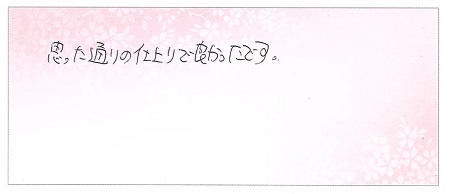 思った通りの仕上りで良かったです。